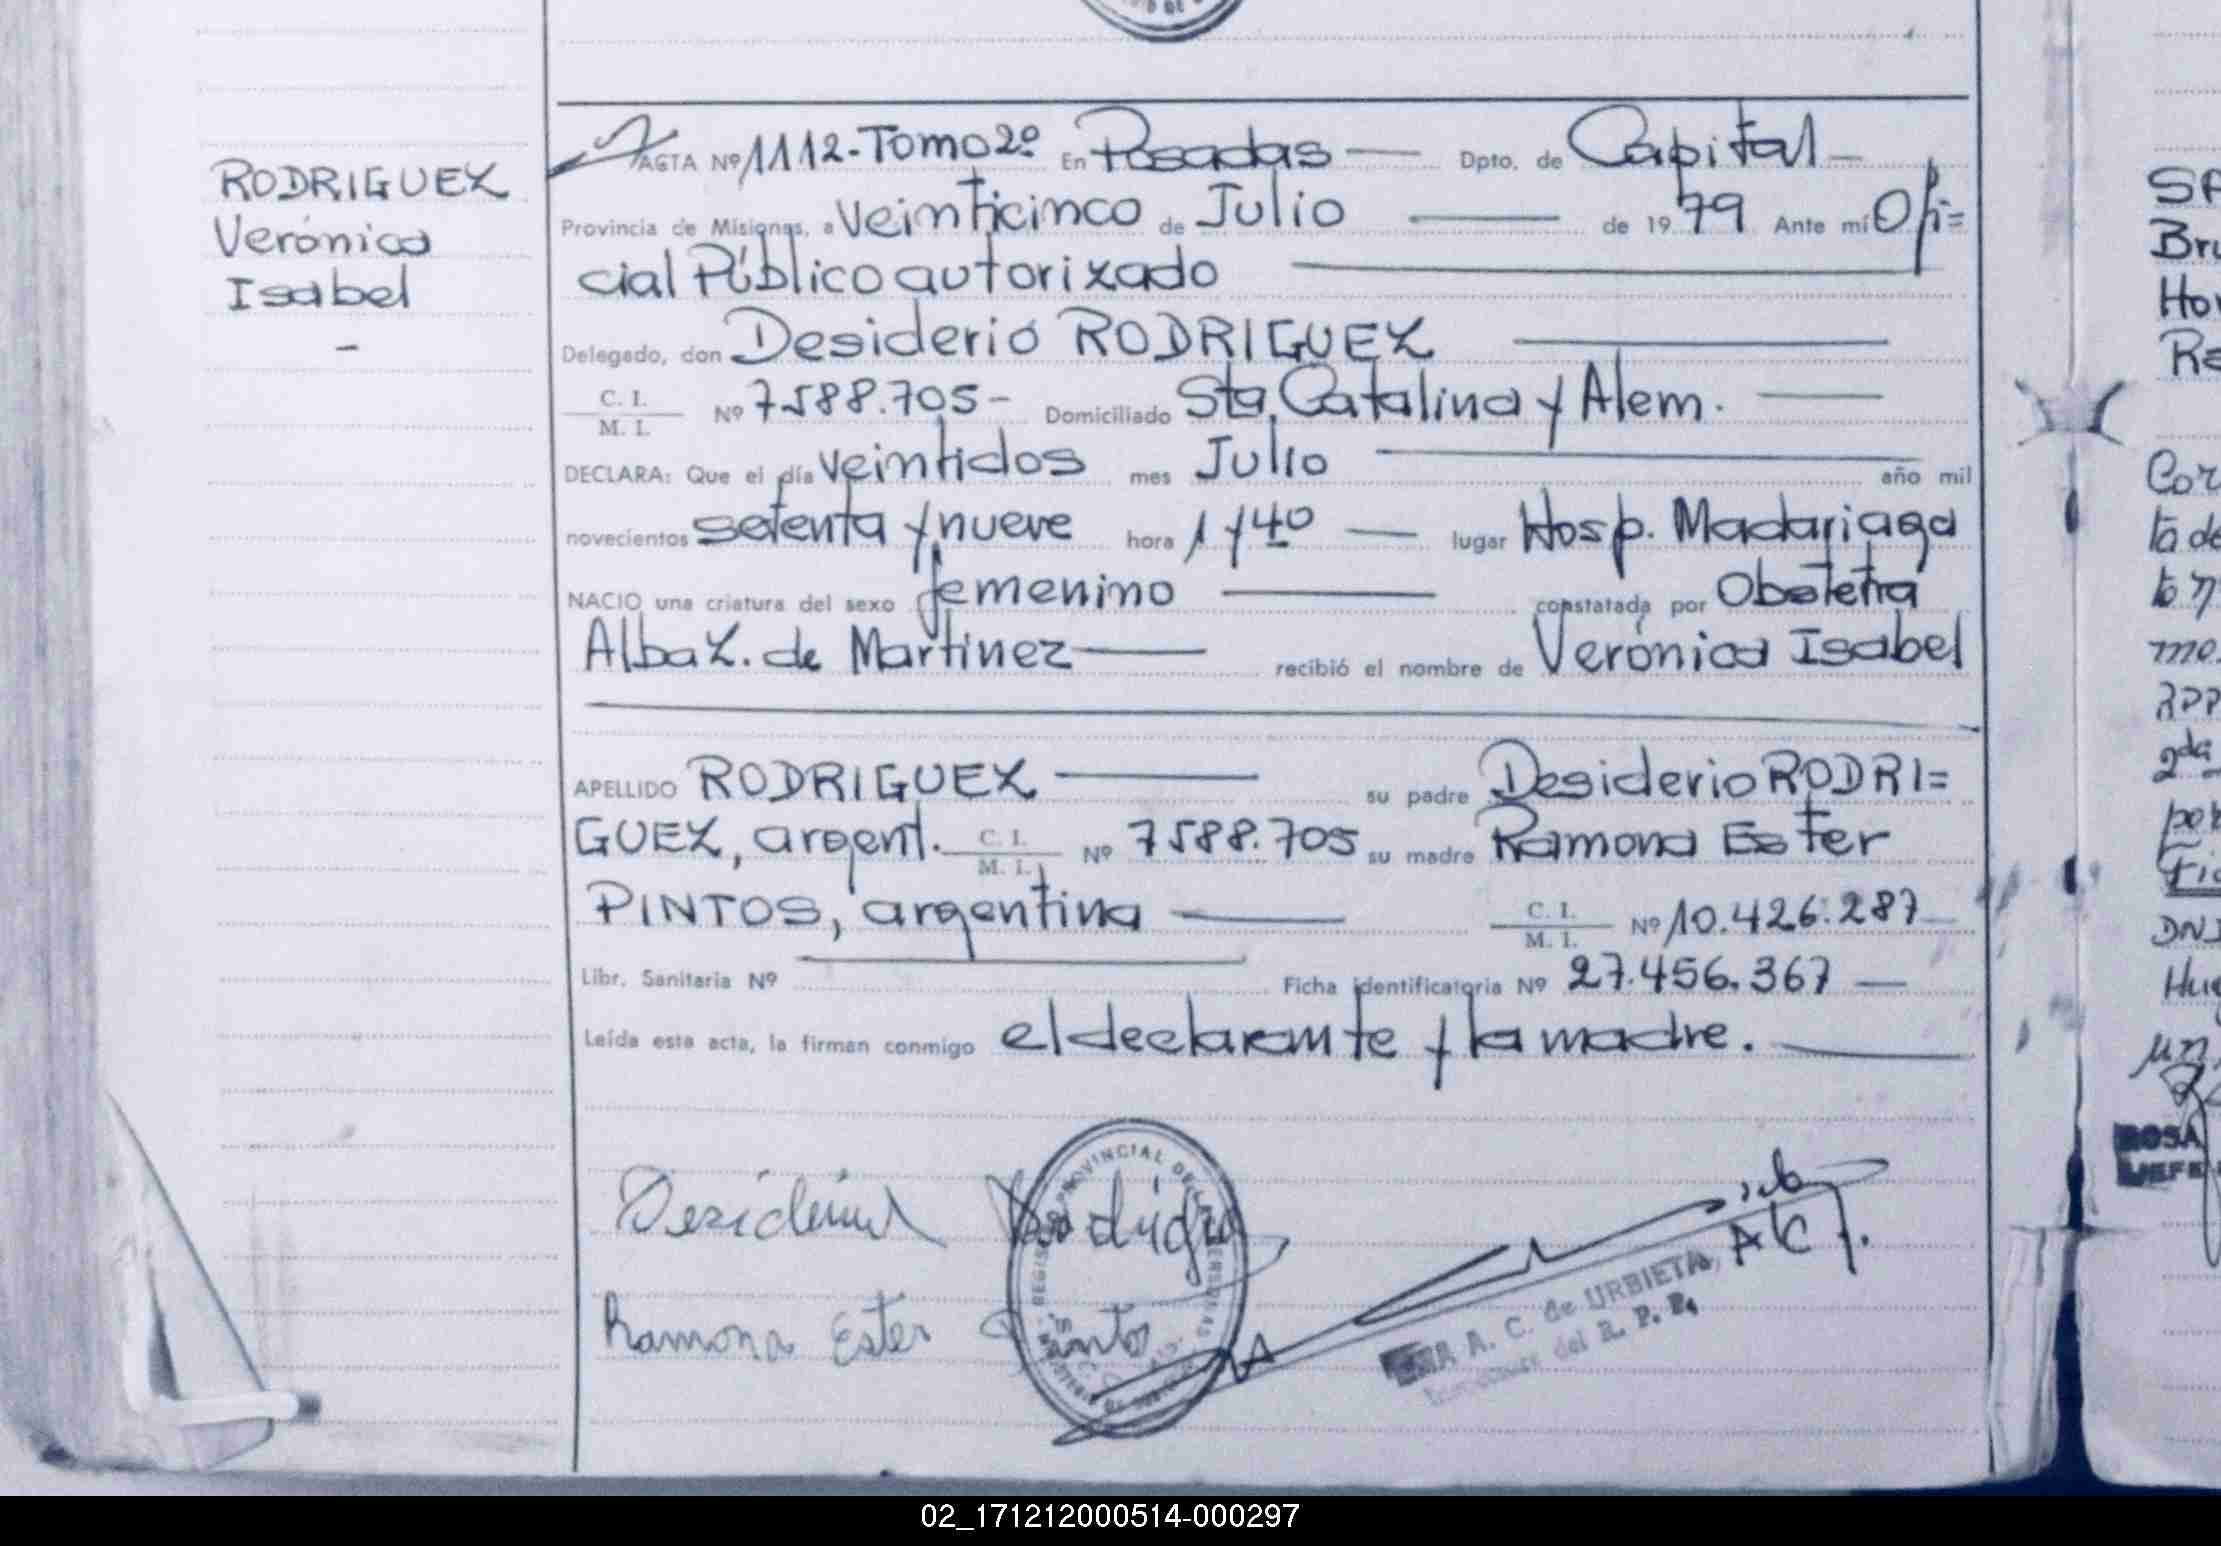 RODRIGUEZ
Verónica
Isabel
-
ACTA Nº 1112-Tomo 2º En Posadas — Dpto. de Capital —
Provincia de Misiones, a veinticinco de Julio — de 1979 Ante mí Ofi=
cial Público autorizado —
Delegado, don Desiderio RODRIGUEZ —
C. I.
M. I. Nº 7588.705- Domiciliado Sta. Catalina y Alem. —
DECLARA: Que el día veintidos mes Julio — año mil
novecientos setenta y nueve hora 1 y 40 — lugar Hosp. Madariaga
NACIO una criatura del sexo femenino — constatada por Obstetra
Alba Z. de Martinez — recibió el nombre de Verónica Isabel
APELLIDO RODRIGUEZ — su padre Desiderio RODRI=
GUEZ, argent. C. I.
M. I. Nº 7588.705 su madre Ramona Ester
PINTOS, argentina — C. I.
M. I. Nº 10.426.287
Libr. Sanitaria Nº — Ficha identificatoria Nº 27.456.367 —
Leída esta acta, la firman conmigo el declarante y la madre. —
Desiderio Rodrigue
Ramona Ester Pinto
PROVINCIAL DE LAS PERSONAS
A. C. de URBIETA
del R. P. P.
Bru
Hor
Cor
DNI
ROSA
JEFE
02_171212000514-000297